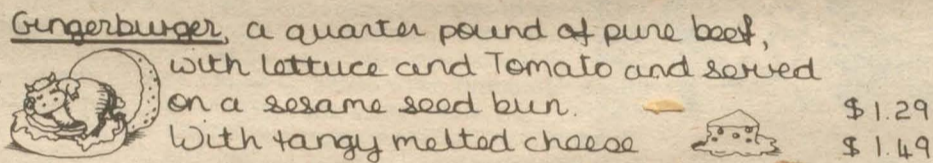 Gingerburger, a quarter pound of pure beef,
with lettuce and Tomato and served
on a sesame seed bun. $1.29
With tangy melted cheese $1.49